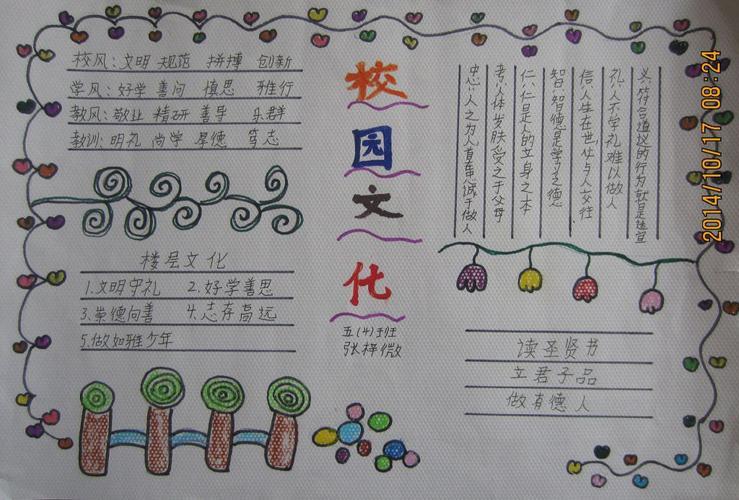 校风：文明 规范 拼搏 创新
学风：好学 善问 慎思 雅行
教风：敬业 精研 善导 乐群
教训：明礼 尚学 厚德 笃志
楼层文化
1.文明守礼 2.好学善思
3.崇德向善 4.志存高远
5.做如雅少年
校园文化
五(4)班
张梓微
义：符合道义的行为就是适宜
礼：人不学礼难以做人
信：人生在世与人交往
智：智德是学习之德
仁：仁是人的立身之本
孝：人体发肤受之于父母
忠：人之为人首事忠诚于做人
读圣贤书
立君子品
做有德人
2014/10/17 08:24